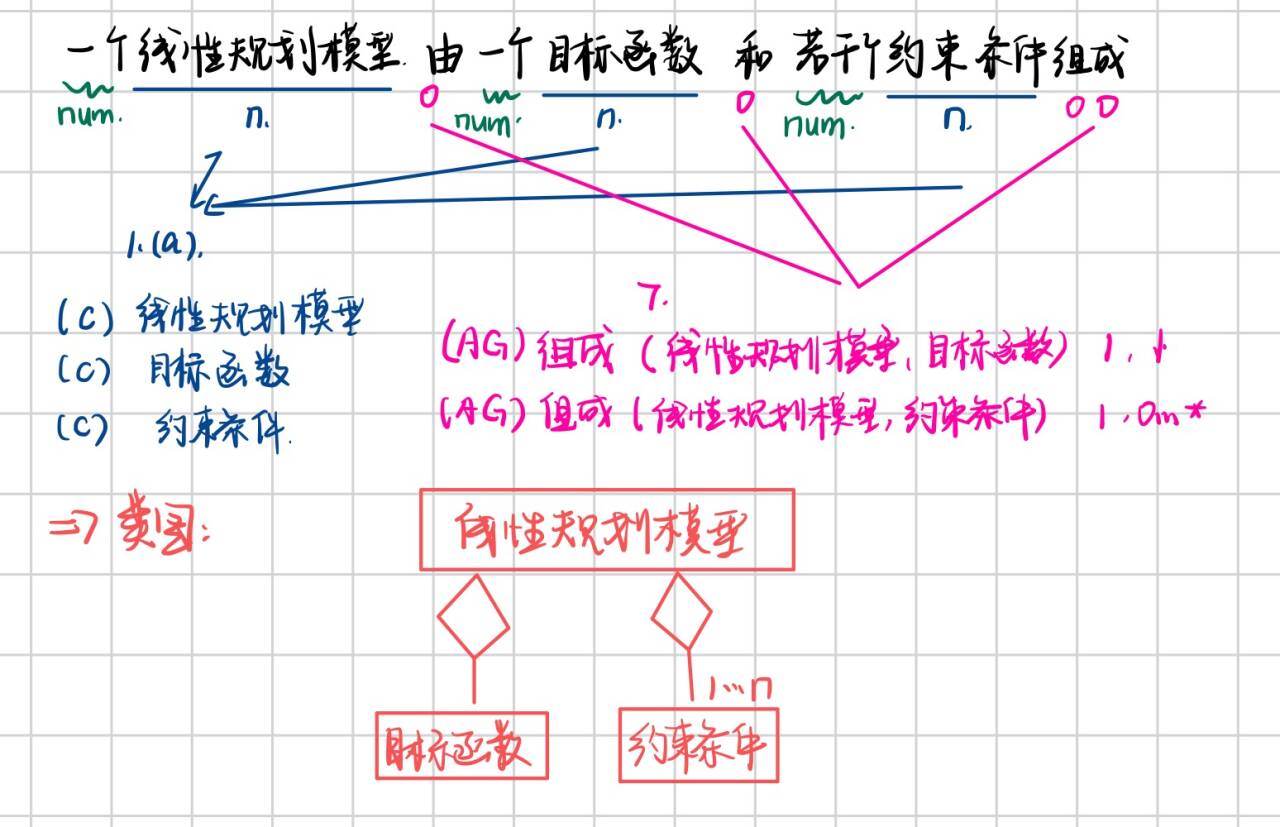 一个线性规划模型 由一个目标函数 和 若干个约束条件组成
num. n. num. n. num. n.
1.(a).
7.
(C) 线性规划模型
(C) 目标函数
(C) 约束条件.
(AG) 组成 (线性规划模型, 目标函数) 1, 1
(AG) 组成 (线性规划模型, 约束条件) 1, 0m*
=> 类图:
线性规划模型
1...n
目标函数
约束条件